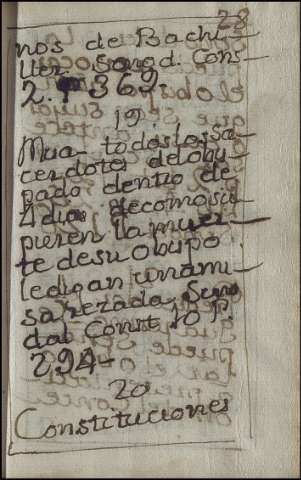 28
nos de Bachi-
ller. Synod. Cons-
2. P. 369
19
Mua- todos los sa-
cerdotes del obis-
pado dentro de
4 dias de como su-
pieren la muer-
te de su obispo
le digan una mi-
sa rezada. Syno
dal Const. 10 P.
294-
20
Constituciones